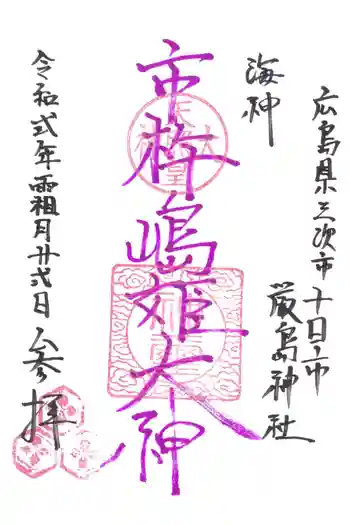 広島県三次市十日市
厳島神社
海神
市杵嶋姫大神
令和弐年霜月廿弐日
参拝